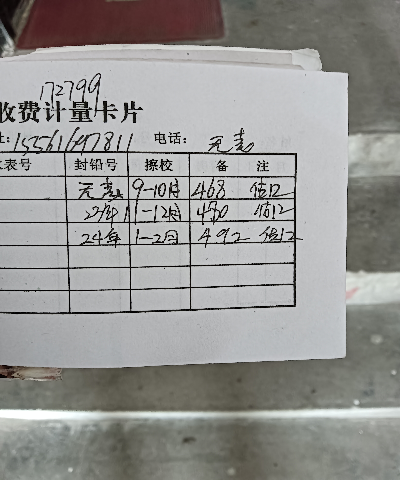 172799
收费计量卡片
址:15561697811 电话: 无表
水表号 封铅号 擦校 备 注
无表 9-10月 468 估12
23年 11-12月 480 估12
24年 1-2月 492 估12